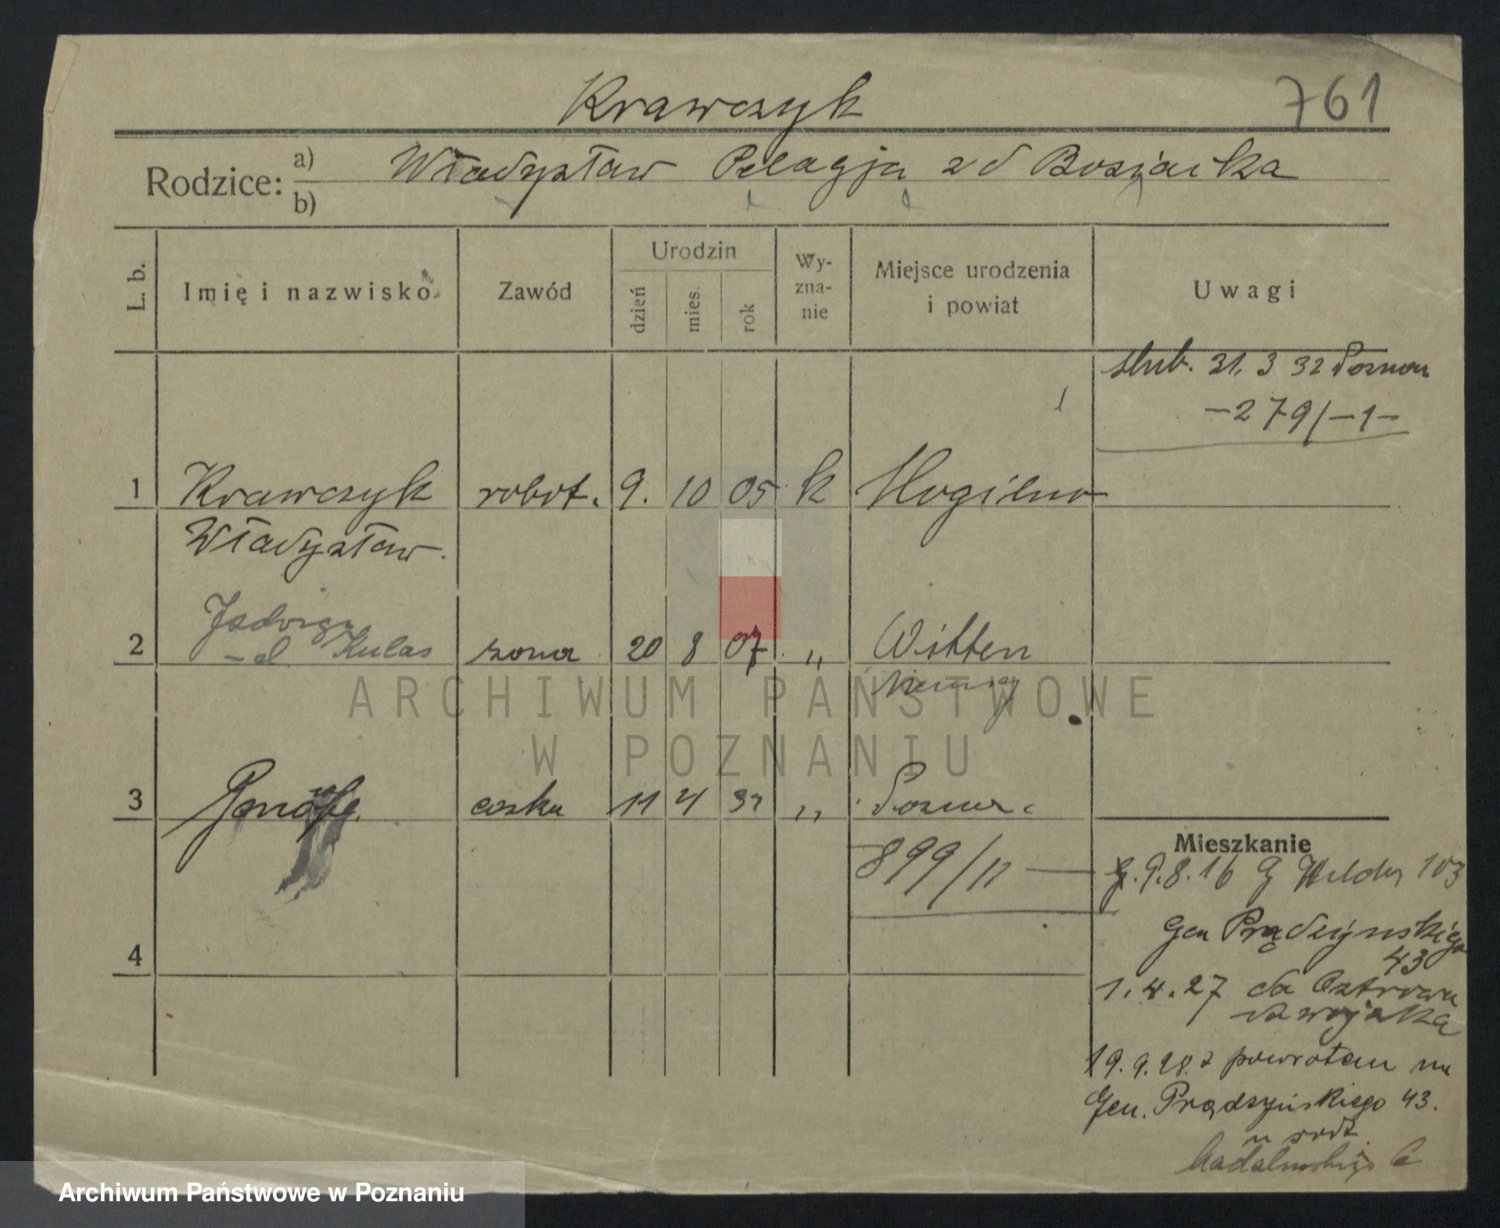 Krawczyk
761
Rodzice: a) Władysław Pelagja z d Bosiacka
b)
L. b.
Imię i nazwisko
Zawód
Urodzin
dzień
mies.
rok
Wy-
zna-
nie
Miejsce urodzenia
i powiat
Uwagi
slub. 31. 3 32 Poznań
-279/-1-
1 Krawczyk robot. 9. 10 05 k Mogilno
Władysław.
Jadwiga
2 - d Kulas żona 20 8 07 " Witten
Niemcy
3 córka 11 4 " Poznań
899/11
4
Mieszkanie
9.8.16 G Wilda 103
Gen Prądzyńskiego
43
1.4.27 do Ostrowa
do wojska
19.9.28 z powrotem na
Gen. Prądzyńskiego 43.
u rodz.
ARCHIWUM PAŃSTWOWE
W POZNANIU
Archiwum Państwowe w Poznaniu